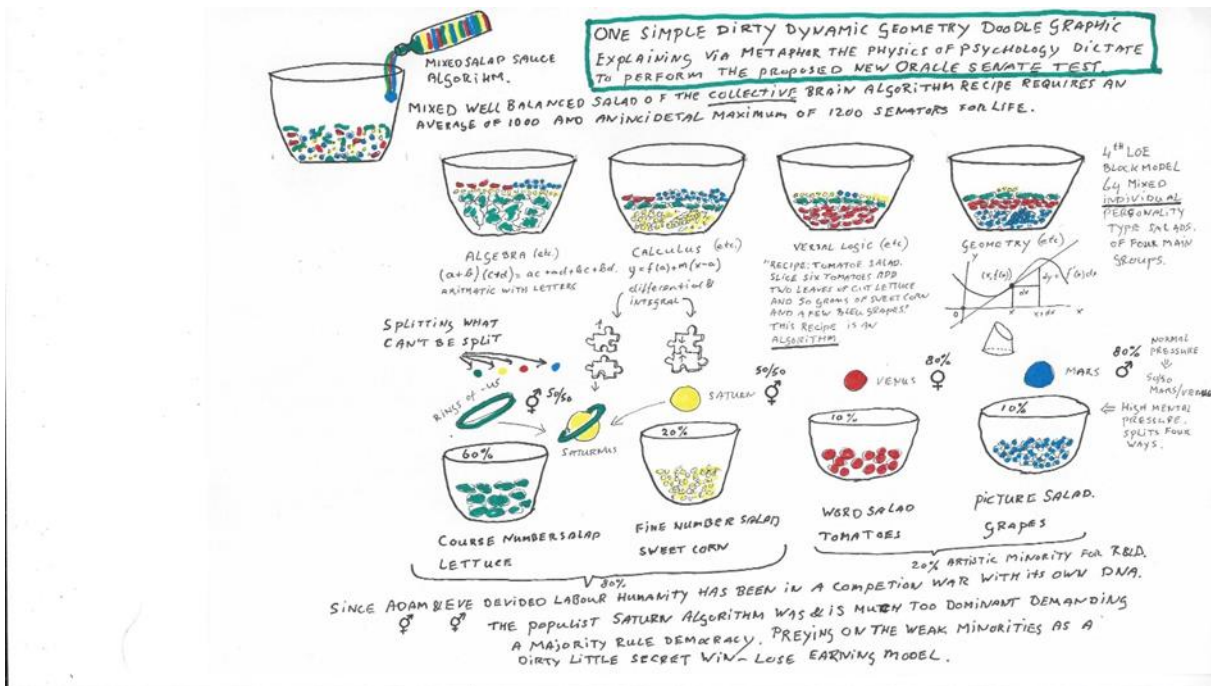 ONE SIMPLE DIRTY DYNAMIC GEOMETRY DOODLE GRAPHIC
EXPLAINING VIA METAPHOR THE PHYSICS OF PSYCHOLOGY DICTATE
TO PERFORM THE PROPOSED NEW ORACLE SENATE TEST.
MIXED SALAD SAUCE
ALGORITHM.
MIXED WELL BALANCED SALAD OF THE COLLECTIVE BRAIN ALGORITHM RECIPE REQUIRES AN
AVERAGE OF 1000 AND AN INCIDETAL MAXIMUM OF 1200 SENATORS FOR LIFE.
4th LOE
BLOCK MODEL
64 MIXED
INDIVIDUAL
PERSONALITY
TYPE SALADS.
OF FOUR MAIN
GROUPS.
ALGEBRA (etc.)
(a+b)(c+d)=ac+ad+bc+bd.
ARITMATIC WITH LETTERS
CALCULUS (etc.)
y=f(a)+m(x-a)
differential &
INTEGRAL
VERSAL LOGIC (etc)
"RECIPE: TOMATOE SALAD.
SLICE SIX TOMATOES ADD
TWO LEAVES OF CUT LETTUCE
AND 50 GRAMS OF SWEET CORN
AND A FEW BLEU GRAPES."
THIS RECIPE IS AN
ALGORITHM
GEOMETRY (etc)
y
(x,f(x))
dy=f'(x)dx
dx
0
x
x+dx
x
SPLITTING WHAT
CAN'T BE SPLIT
RINGS OF -US
50/50
SATURNUS
SATURN
50/50
VENUS
80%
MARS
80%
NORMAL
PRESSURE
50/50
MARS/VENUS
HIGH MENTAL
PRESSURE.
SPLITS FOUR
WAYS.
60%
20%
10%
10%
COURSE NUMBER SALAD
LETTUCE
FINE NUMBER SALAD
SWEET CORN
WORD SALAD
TOMATOES
PICTURE SALAD.
GRAPES
80%
20% ARTISTIC MINORITY FOR R&D.
SINCE ADAM & EVE DEVIDED LABOUR HUMANITY HAS BEEN IN A COMPETION WAR WITH ITS OWN DNA.
THE POPULIST SATURN ALGORITHM WAS & IS MUCH TOO DOMINANT DEMANDING
A MAJORITY RULE DEMOCRACY. PREYING ON THE WEAK MINORITIES AS A
DIRTY LITTLE SECRET WIN-LOSE EARNING MODEL.